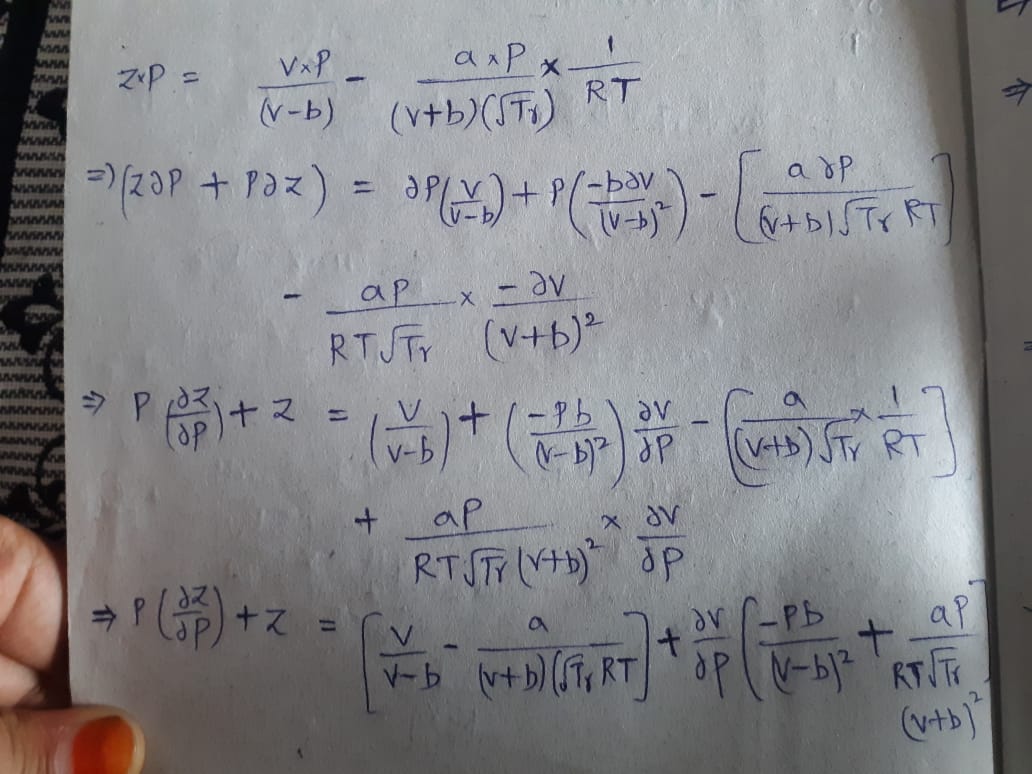 z×P = (v×P)/(v-b) - (a×P)/((v+b)(√Tr)) × 1/RT
⇒ (z∂P + P∂z) = ∂P(v/(v-b)) + P(-b∂v/(v-b)²) - [a∂P/((v+b)√Tr RT)]
- aP/(RT√Tr) × -∂v/(v+b)²
⇒ P(∂z/∂P) + z = (v/(v-b)) + (-Pb/(v-b)²) ∂v/∂P - [a/((v+b)√Tr) × 1/RT]
+ aP/(RT√Tr (v+b)²) × ∂v/∂P
⇒ P(∂z/∂P) + z = [v/(v-b) - a/((v+b)(√Tr RT)] + ∂v/∂P [-Pb/(v-b)² + aP/(RT√Tr (v+b)²)]